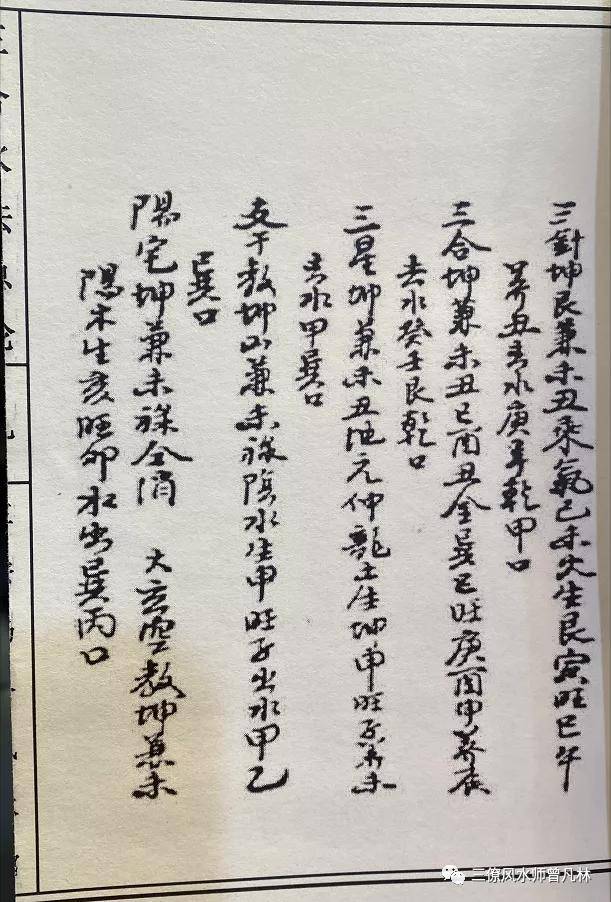 三針坤艮兼未丑乘氣己未火生艮寅旺巳午
养丑去水庚辛乾甲口
三合坤兼未丑巳酉丑金巽巳旺庚酉甲养辰
去水癸壬艮乾口
三星坤兼未丑地元仲龍土生坤申旺子癸未
去水甲巽口
支干教坤山兼未祿陰水生申旺子出水甲乙
巽口
陽宅坤兼未祿全消 大玄空教坤兼未
陽木生亥旺卯水出巽丙口
三僚风水师曾凡林